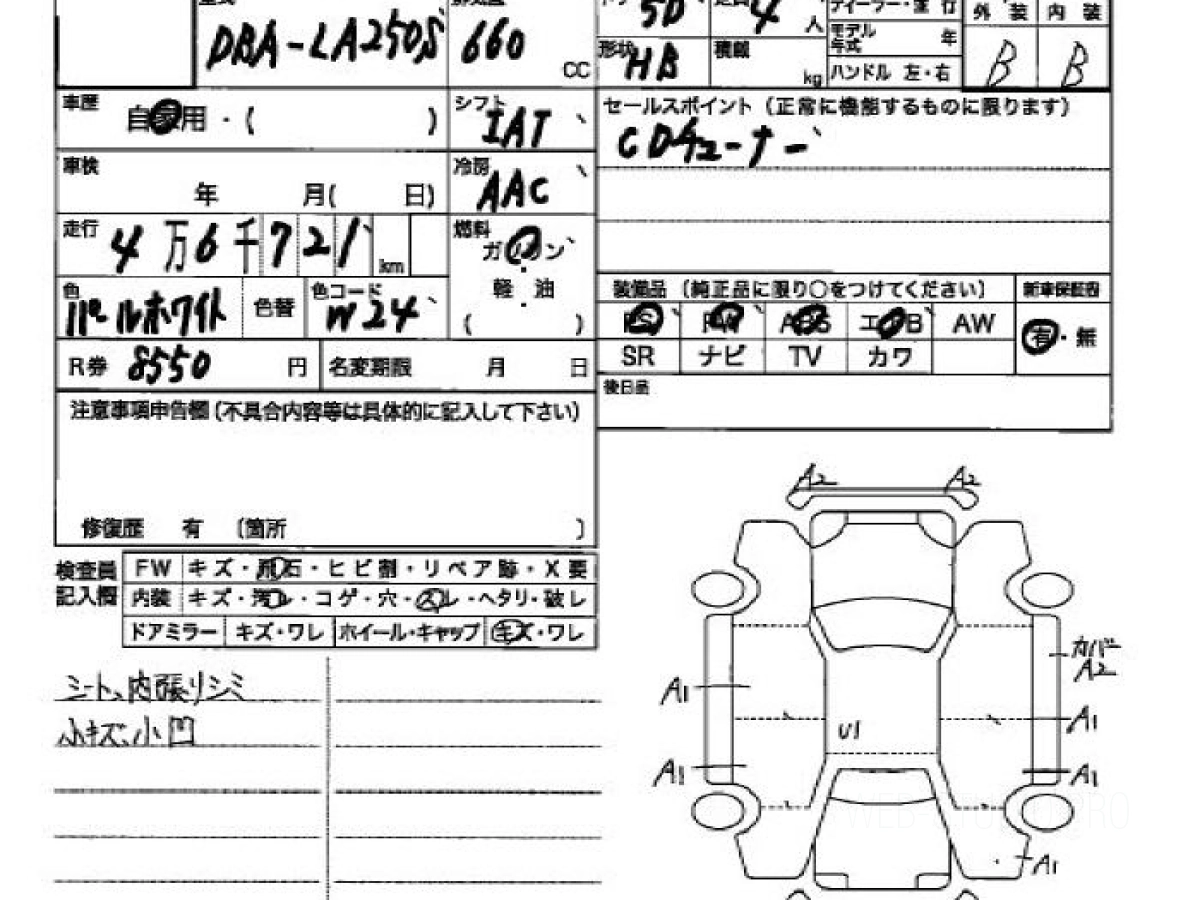 DBA-LA250S 660 CC
5D 4 人
ディーラー・並 行
外 装 内 装
形状 HB 積載 kg
モデル年式 年
ハンドル 左・右
B B
車歴 自家用・( )
シフト IAT
セールスポイント(正常に機能するものに限ります)
CDチューナー
車検 年 月( 日)
冷房 AAC
走行 4万6千721 km
燃料 ガソリン
軽 油
( )
色 パールホワイト 色替 色コード W24
装備品 (純正品に限り○をつけてください) 新車保証書
PS PW ABS エアB AW 有・無
SR ナビ TV カワ
R券 8550 円 名変期限 月 日
後日品
注意事項申告欄(不具合内容等は具体的に記入して下さい)
修復歴 有 〔箇所 〕
検査員記入欄
FW キズ・飛石・ヒビ割・リペア跡・X要
内装 キズ・汚レ・コゲ・穴・スレ・ヘタリ・破レ
ドアミラー キズ・ワレ ホイール・キャップ キズ・ワレ
シート、内張りシミ
小キズ、小凹
A2 A2
カバー
A2
A1
A1
U1
A1
A1
A1